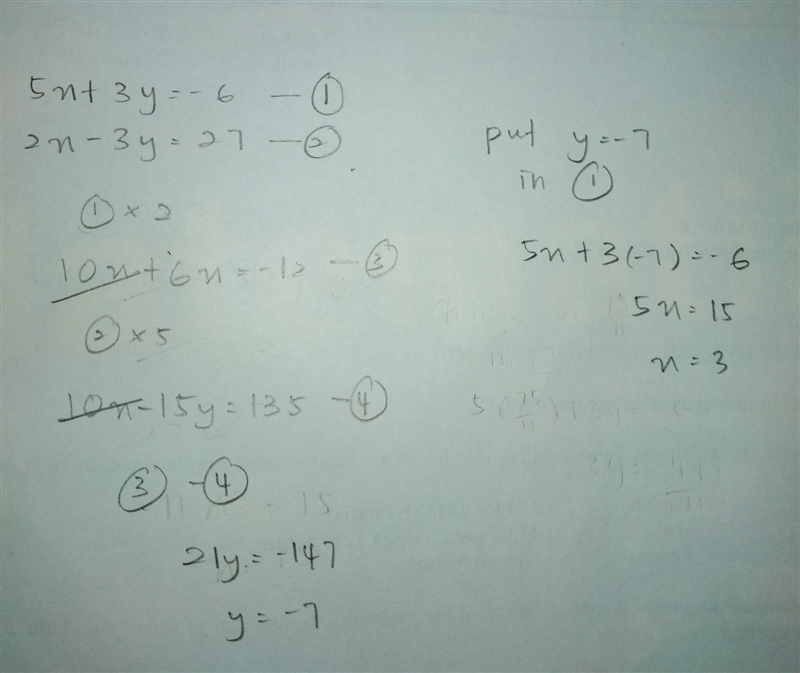 5x + 3y = -6 — ①
2x - 3y = 27 — ②
① × 2
10x + 6x = -12 — ③
② × 5
10x - 15y = 135 — ④
③ - ④
21y = -147
y = -7
put y = -7
in ①
5x + 3(-7) = -6
5x = 15
x = 3